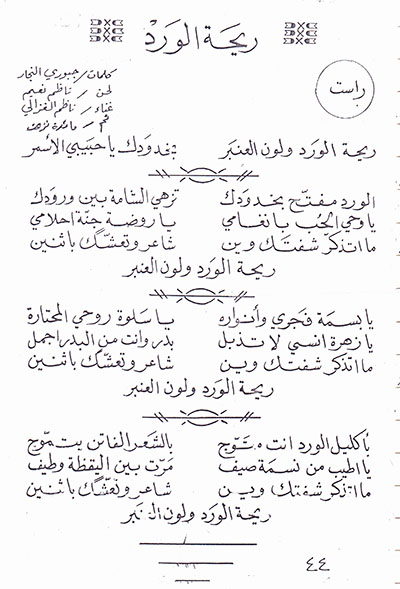 ريحة الورد
كلمات / جبوري النجار
لحن / ناظم نعيم
غناء / ناظم الغزالي
راست
ريحة الورد ولون العنبر بخدودك يا حبيبي الأسمر
الورد مفتح بخدودك تزهي الشامة بين ورودك
يا وحي الحب يا نغامي يا روضة جنة احلامي
ما اتذكر شفتك وين شاعر وتعشگك باثنين
ريحة الورد ولون العنبر
يا بسمة فجري وأنواره يا سلوة روحي المحتارة
يا زهرة انسي لا تذبل بدر وانت من البدر اجمل
ما اتذكر شفتك وين شاعر وتعشگك باثنين
ريحة الورد ولون العنبر
باكليل الورد انت بالشعر الفاتن يتموج
يا اطيب من نسمة صيف مرت بين اليقظة وطيف
ما اتذكر شفتك وين شاعر وتعشگك باثنين
ريحة الورد ولون
٤٤